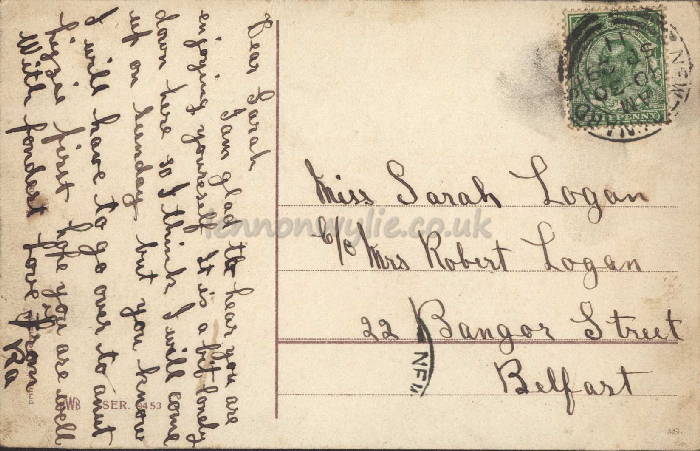 Dear Sarah
I am glad to hear you are
enjoying yourself It is a bit lonely
down here so I think I will come
up on Sunday but you know
I will have to go over to aunt
Lizzie first hope you are well
With fondest love from
Ra
Miss Sarah Logan
c/o Mrs Robert Logan
22 Bangor Street
Belfast
PENNY
NEW
AM
30
11
NEW
lennonwylie.co.uk
SER. 6453